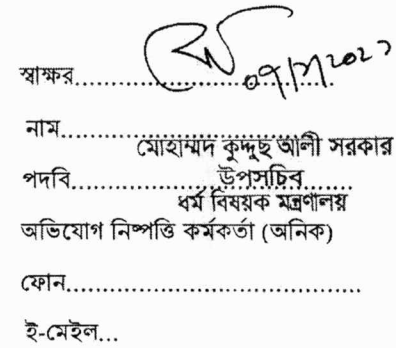 স্বাক্ষর....................................
নাম....................................
মোহাম্মদ কুদ্দুছ আলী সরকার
পদবি..................উপসচিব..............
ধর্ম বিষয়ক মন্ত্রণালয়
অভিযোগ নিষ্পত্তি কর্মকর্তা (অনিক)
ফোন.......................................
ই-মেইল...